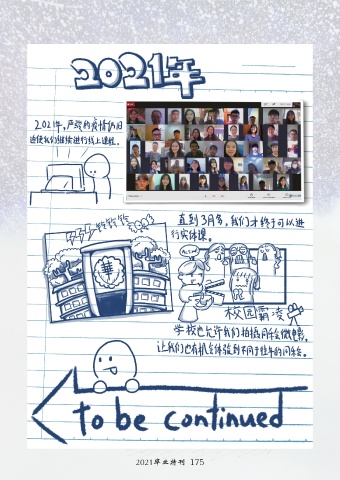 2021年
2021年，严峻的疫情仍旧
迫使我们继续进行线上课程。
铃铃铃
直到3月多，我们才终于可以进
行实体课。
校园霸凌
学校也允许我们拍摄同乐会微电影，
让我们也有机会体验到不同于往年的同乐会。
to be continued
2021毕业特刊 175